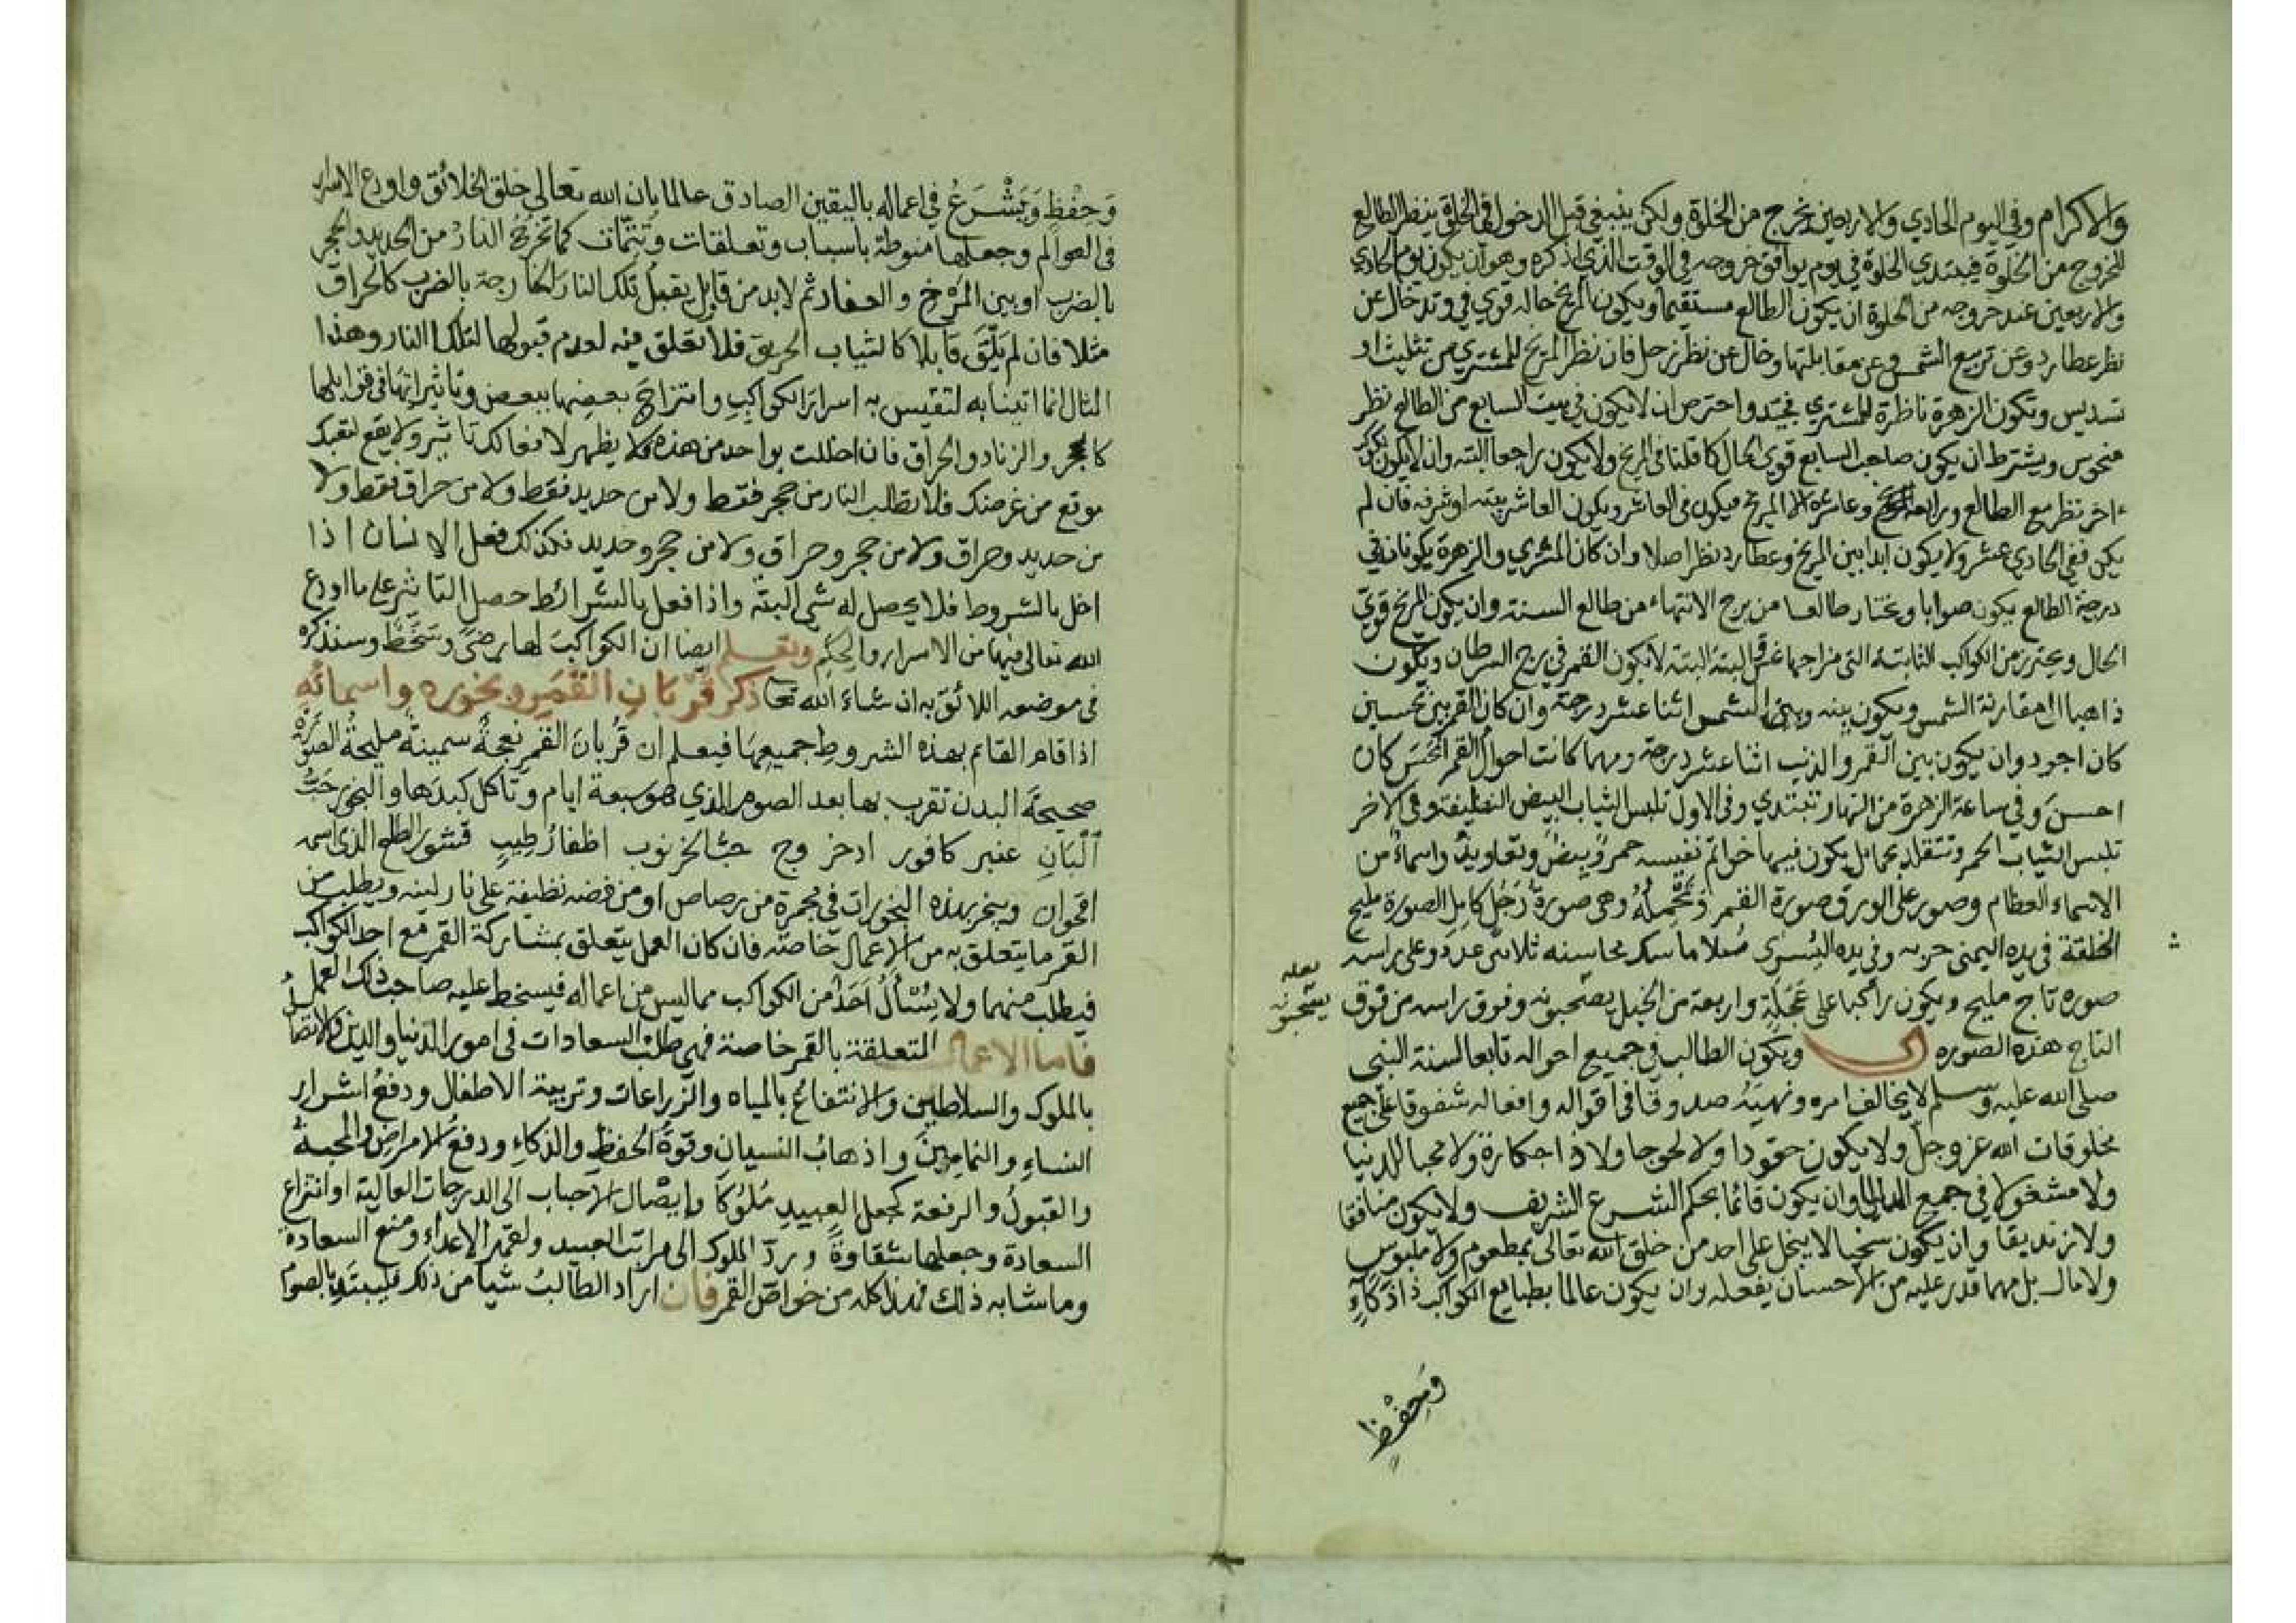 والاكرام وفي اليوم الحادي والاربعين يخرج من الخلوة ولكن ينبغي قبل الدخول في الخلوة ينظر الطالع
للخروج من الخلوة فيبتدي الخلوة في يوم يوافق خروجه في الوقت الذي اذكره وهو ان يكون يوم الحادي
والاربعين عند خروجه من الخلوة ان يكون الطالع مستقيما ويكون المريخ حاله قوي في وتد خال عن
نظر عطارد وعن تربيع الشمس وعن مقابلتها وخال عن نظر زحل فان نظر المريخ للمشتري من تثليث او
تسديس وتكون الزهرة ناظرة للمشتري فجيد واحترص ان لا يكون في بيت السابع من الطالع نظر
منحوس ويشترط ان يكون صاحب السابع قوي الحال كما قلنا في المريخ ولا يكون راجعا البته وان لا يكون كوكب
اخر نظر مع الطالع ورابعه وعاشره الا المريخ فيكون في العاشر ويكون العاشر بيته او شرفه فان لم
يكن ففي الحادي عشر ولا يكون ابدا بين المريخ وعطارد نظر اصلا وان كان المشتري والزهرة يكونان في
درجة الطالع يكون صوابا ويختار طالعا من برج الانتهاء من طالع السنة وان يكون المريخ قوي
الحال ويحترز من الكواكب الثابتة التي مزاجها البتة البتة لا يكون القمر في برج السرطان ويكون
ذاهبا الى مقارنة الشمس ويكون بينه وبين الشمس اثنا عشر درجة وان كان القمر بين نحسين
كان اجود وان يكون بين القمر والذنب اثنا عشر درجة ومهما كانت احوال القمر انحس كان
احسن وفي ساعة الزهرة من النهار تبتدي وفي الاول تلبس الثياب البيض النظيفة وفي الاخر
تلبس الثياب الحمر وتتقلد بحمائل يكون فيها خواتم نفيسه حمر وبيض وتعاويذ واسماء من
الاسماء العظام وصور على الورق صورة القمر وتحمله وهي صورة رجل كامل الصورة مليح
الخلقة في يده اليمنى حربه وفي يده اليسرى ماسك محاسنه ثلاثين عدد وعلى راسه
صوره تاج مليح ويكون راكبا على عجلة واربعة من الخيل يصحبونه وفوق راسه من فوق
لعله
يسحبونه
التاج هذه الصوره ويكون الطالب في جميع احواله تابعا لسنة النبي
صلى الله عليه وسلم لا يخالف امره ونهيه صدوقا في اقواله وافعاله شفوقا على جميع
مخلوقات الله عز وجل ولا يكون حقودا ولا لحوجا ولا ذا احكارة ولا محبا للدنيا
ولا مشغولا في جميع المال وان يكون قائما بحكم الشرع الشريف ولا يكون منافقا
ولا زنديقا وان يكون سخيا لا يبخل على احد من خلق الله تعالى بمطعوم ولا ملبوس
ولا مال بل مهما قدر عليه من الاحسان يفعله وان يكون عالما بطبايع الكواكب ذا ذكاء
وحفظ
وحفظ ويشرع في اعماله باليقين الصادق عالما بان الله تعالى خلق الخلائق واودع الاسرار
في العوالم وجعلها منوطة باسباب وتعلقات وتتمات كما تخرج النار من الحديد والحجر
بالضرب او بين المرخ والعفار ثم لابد من قابل يقبل تلك النار الخارجة بالضرب كالحراق
مثلا فان لم يلق قابلا كالثياب الحريق فلا تعلق فيه لعدم قبولها لتلك النار وهذا
المثال انما اتينا به لتقيس به اسرار الكواكب وامتزاج بعضها ببعض وتاثيراتها في قوابلها
كالحجر والزناد والحراق فان اخللت بواحد من هذه فلا يظهر لافعالك تاثير ولا يقع لتعبك
موقع من غرضك فلا تطلب النار من حجر فقط ولا من حديد فقط ولا من حراق فقط ولا
من حديد وحراق ولا من حجر وحراق ولا من حجر وحديد فكذلك فعل الانسان اذا
اخل بالشروط فلا يحصل له شي البتة واذا فعل بالشرائط حصل التاثير على ما اودع
الله تعالى فيها من الاسرار والحكم وتعلم ايضا ان الكواكب لها رضى وسخط وسنذكره
في موضعه اللائق به ان شاء الله تعا ذكر قربان القمر وبخوره واسمائه
اذا قام القائم بهذه الشروط جميعها فيعلم ان قربان القمر نعجة سمينة مليحة الصورة
صحيحة البدن تقرب بها بعد الصوم الذي هو سبعة ايام وتاكل كبدها والبخور حب
البان عنبر كافور ادخر وج حب الخرنوب اظفار طيب قشور الطلع الذي اسمه
اقحوان ويبخر بهذه البخورات في مجمرة من رصاص او من فضه نظيفة على نار لينه ويطلب من
القمر ما يتعلق به من الاعمال خاصة فان كان العمل يتعلق بمشاركة القمر مع احد الكواكب
فيطلب منهما ولا يسأل احد من الكواكب مما ليس من اعماله فيسخط عليه صاحب ذاك العمل
فاما الاعمال المتعلقة بالقمر خاصة فهي طلب السعادات في امور الدنيا والدين والاتصال
بالملوك والسلاطين والانتفاع بالمياه والزراعات وتربية الاطفال ودفع اشرار
النساء والنمامين واذهاب النسيان وقوة الحفظ والذكاء ودفع الامراض والمحبة
والقبول والرفعة كجعل العبيد ملوكا وايصال الاحباب الى الدرجات العالية او انتزاع
السعادة وجعلها شقاوة ورد الملوك الى مراتب العبيد ولقهر الاعداء ومنع السعادة
وما شابه ذلك فهذا كله من خواص القمر فان اراد الطالب شيا من ذلك فليبتدي بالصوم